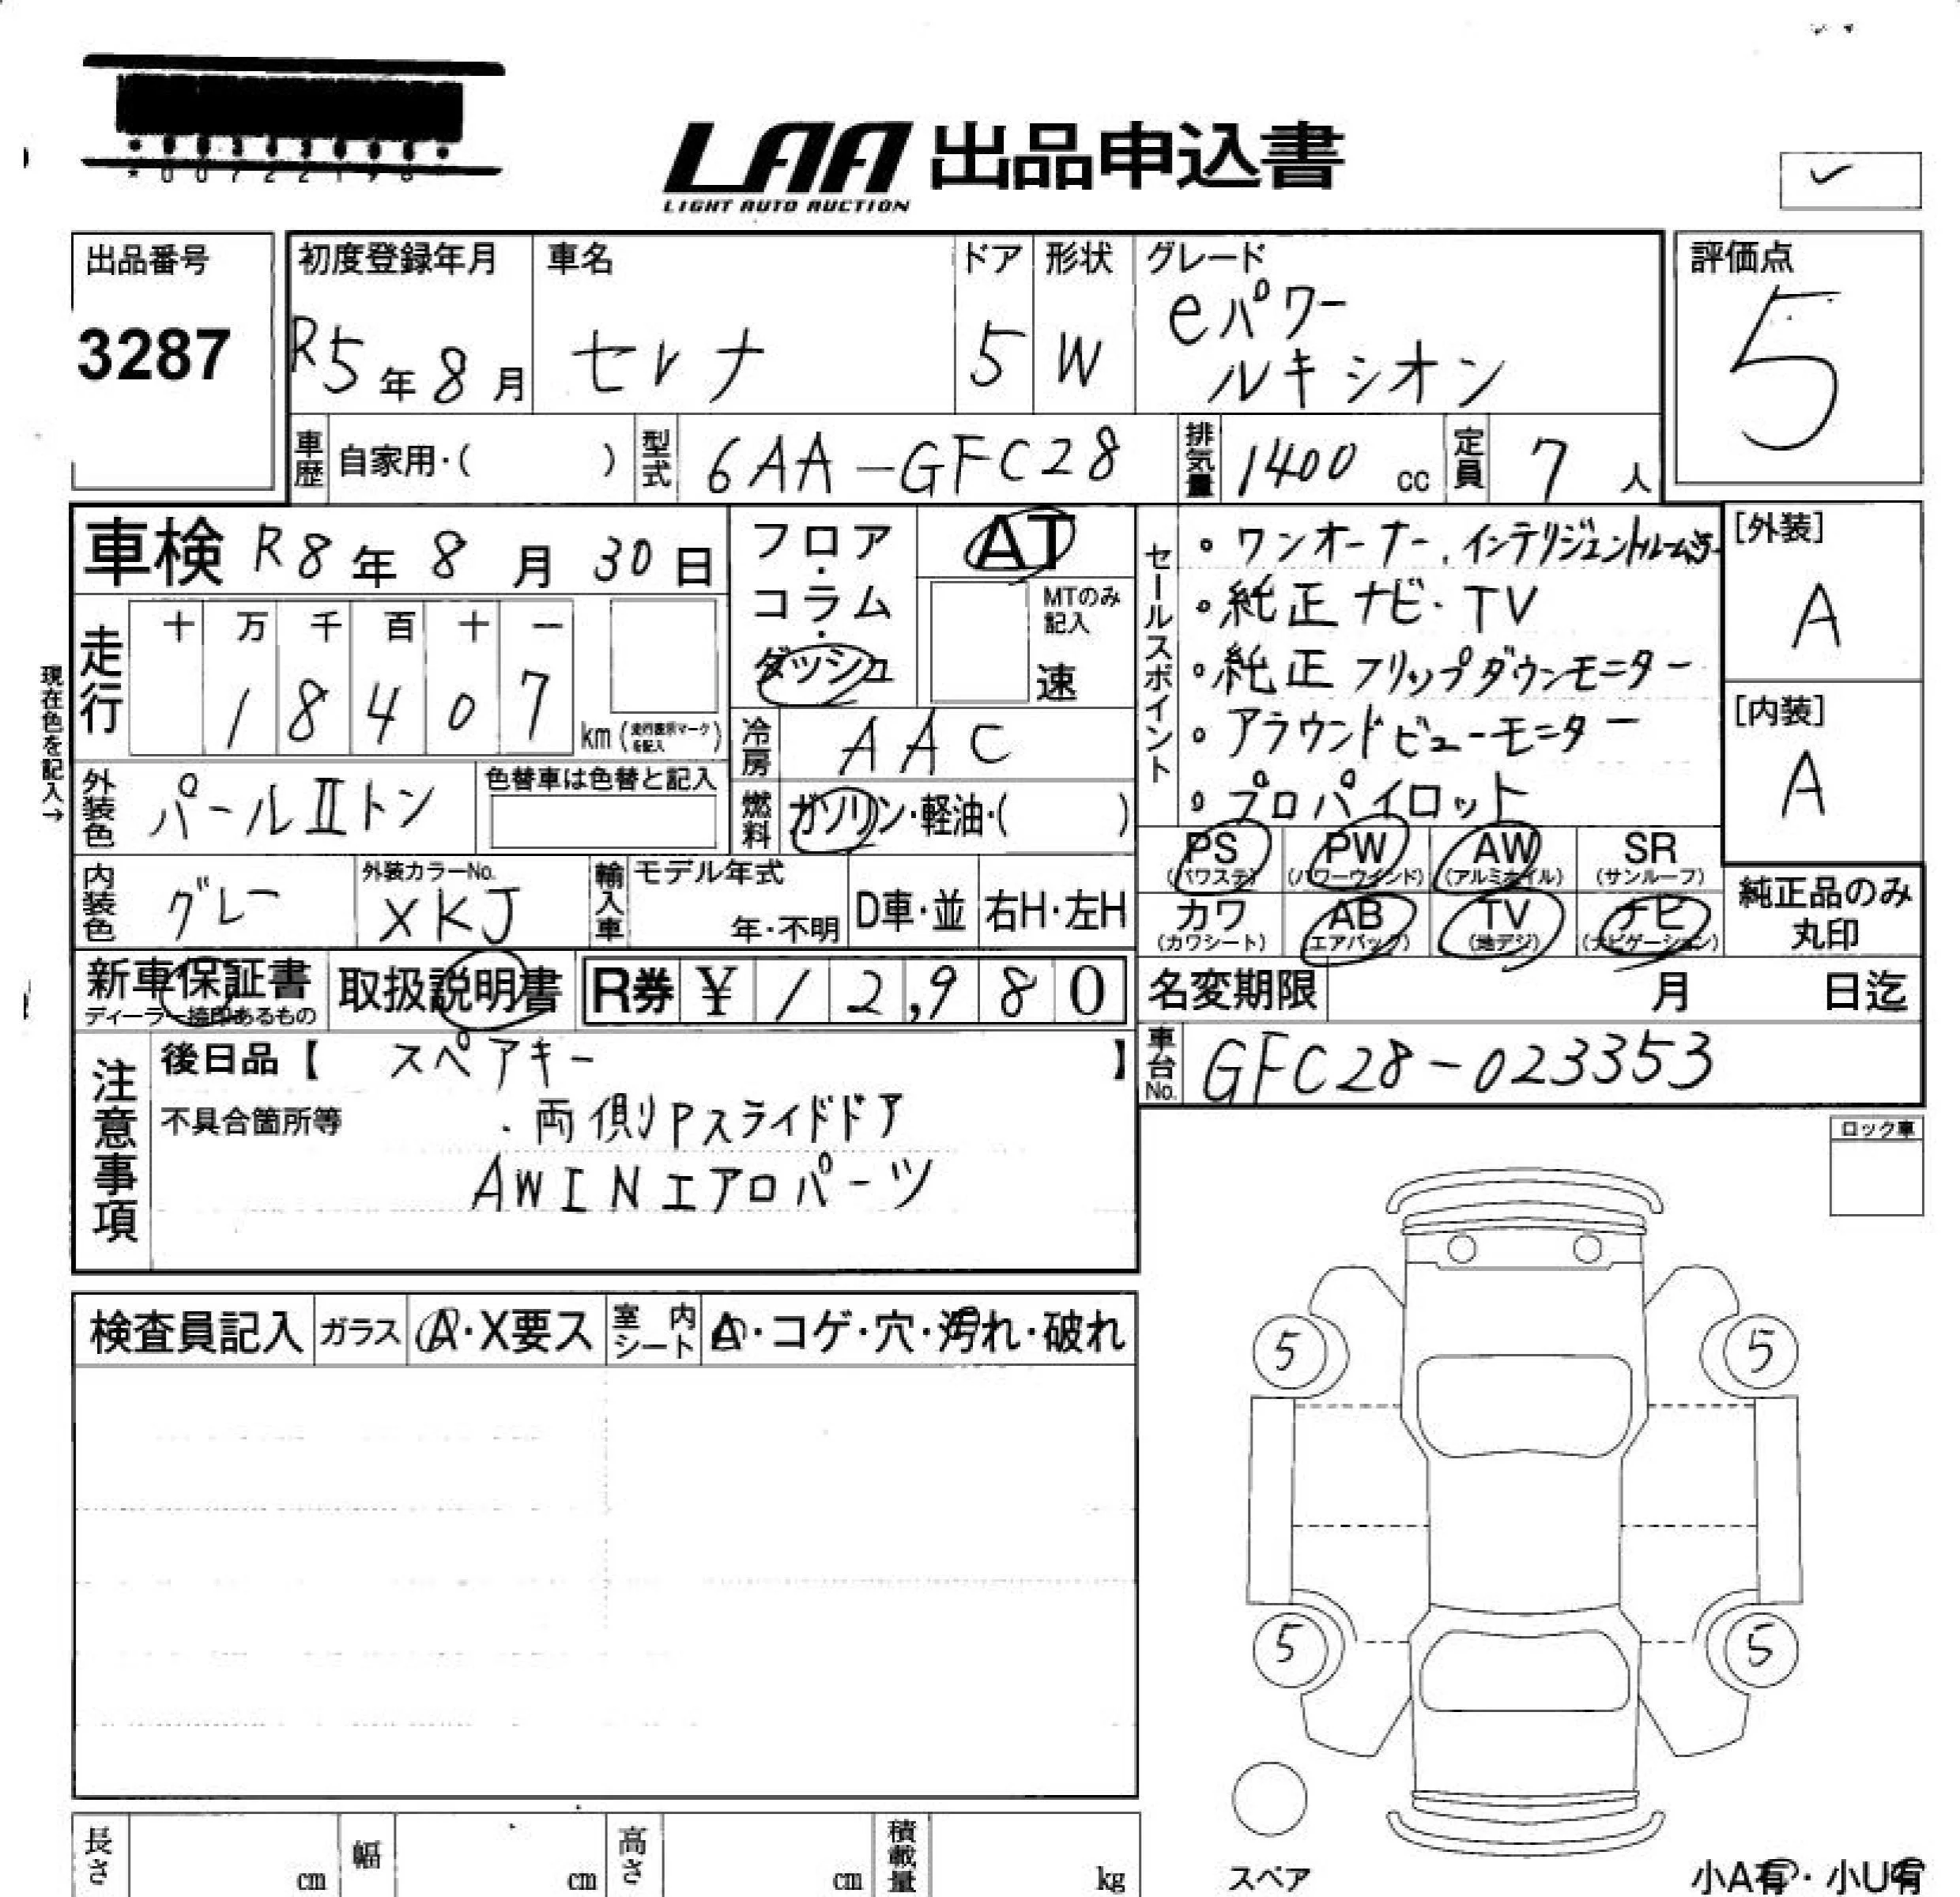 LAA 出品申込書
LIGHT AUTO AUCTION
出品番号
3287
初度登録年月
R5年8月
車名
セレナ
ドア
5
形状
W
グレード
eパワー
ルキシオン
評価点
5
車歴 自家用・( )
型式 6AA-GFC28
排気量 1400 cc
定員 7 人
車検 R8年8月30日
走行
十 万 千 百 十 一
1 8 4 0 7 km (走行表示マークを記入)
現在色を記入→
フロア・コラム・ダッシュ
AT
MTのみ記入
速
冷房 AAC
燃料 ガソリン・軽油・( )
セールスポイント
・ワンオーナー、インテリジェントルームミラー
・純正ナビ・TV
・純正フリップダウンモニター
・アラウンドビューモニター
・プロパイロット
[外装]
A
[内装]
A
外装色 パールⅡトン
色替車は色替と記入
内装色 グレー
外装カラーNo.
XKJ
輸入車
モデル年式
年・不明
D車・並
右H・左H
PS (パワステ)
PW (パワーウインド)
AW (アルミホイル)
SR (サンルーフ)
カワ (カワシート)
AB (エアバッグ)
TV (地デジ)
ナビ (ナビゲーション)
純正品のみ
丸印
新車保証書
ディーラー捺印あるもの
取扱説明書
R券 ¥ 12,980
名変期限 月 日迄
車台No. GFC28-023353
注意事項
後日品【 スペアキー 】
不具合箇所等
・両側Pスライドドア
AWINエアロパーツ
ロック車
検査員記入
ガラス A・X要ス
室内シート A・コゲ・穴・汚れ・破れ
5 5
5 5
スペア
小A有・小U有
長さ cm
幅 cm
高さ cm
積載量 kg